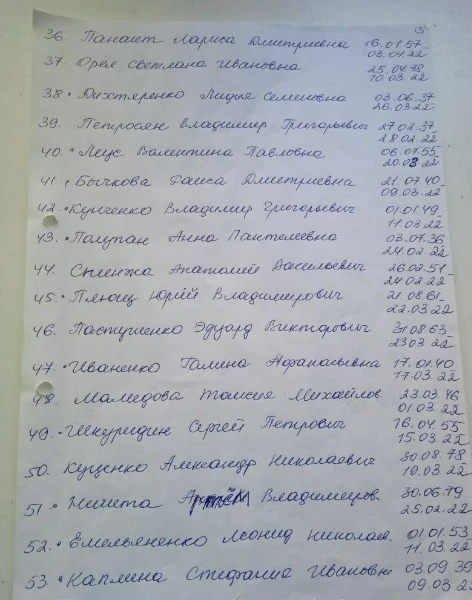 36. Панаит Лариса Дмитриевна 16.01.57
03.04.22
37. Орел Светлана Ивановна 25.04.78
10.03.22
38. Дихтяренко Лидия Семеновна 03.06.37
26.03.22
39. Петросян Владимир Григорьевич 27.02.37
28.02.22
40. Леус Валентина Павловна 06.01.55
20.03.22
41. Бычкова Раиса Дмитриевна 21.07.40
09.03.22
42. Кунченко Владимир Григорьевич 01.01.49
11.03.22
43. Полупан Анна Пантелеевна 03.01.36
24.02.22
44. Анатолий Васильевич 26.02.51
24.02.22
45. Плющ Юрий Владимирович 21.08.61
22.03.22
46. Пастушенко Эдуард Викторович 31.08.63
23.03.22
47. Иваненко Галина Афанасьевна 17.01.40
17.03.22
48. Мамедова Таисия Михайлов. 23.03.46
01.03.22
49. Шкуридин Сергей Петрович 16.04.55
15.03.22
50. Кущенко Александр Николаевич 30.08.78
10.03.22
51. Микита Артём Владимиров. 30.06.79
25.02.22
52. Емельяненко Леонид Николаев. 01.01.53
11.03.22
53. Каплина Стефания Ивановна 03.09.39
09.03.2